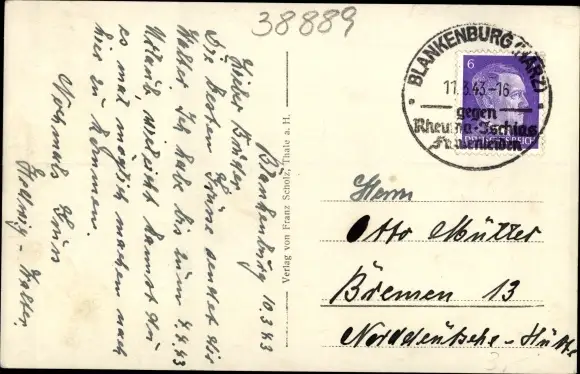 38889
Blankenburg 10.3.43
Lieber Bruder
Die besten Grüße sendet dir
Walter. Ich habe bis zum 4.4.43
Urlaub, vielleicht kannst du
es mal möglich machen nach
hier zu kommen.
Nochmals Gruß
Hedwig - Walter.
Verlag von Franz Scholz, Thale a. H.
BLANKENBURG (HARZ)
11.3.43-16
gegen
Rheuma-Ischias-
Frauenleiden
6
Herrn
Otto Mütter
Bremen 13
Norddeutsche-Hütte